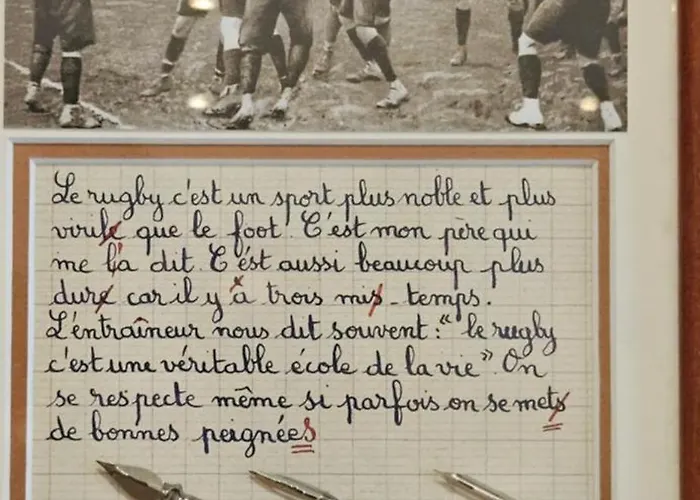 Le rugby c'est un sport plus noble et plus
virile que le foot. C'est mon père qui
me l'a dit. C'est aussi beaucoup plus
dure car il y à trois mis-temps.
L'entraîneur nous dit souvent : "le rugby
c'est une véritable école de la vie". On
se respecte même si parfois on se mets
de bonnes peignées